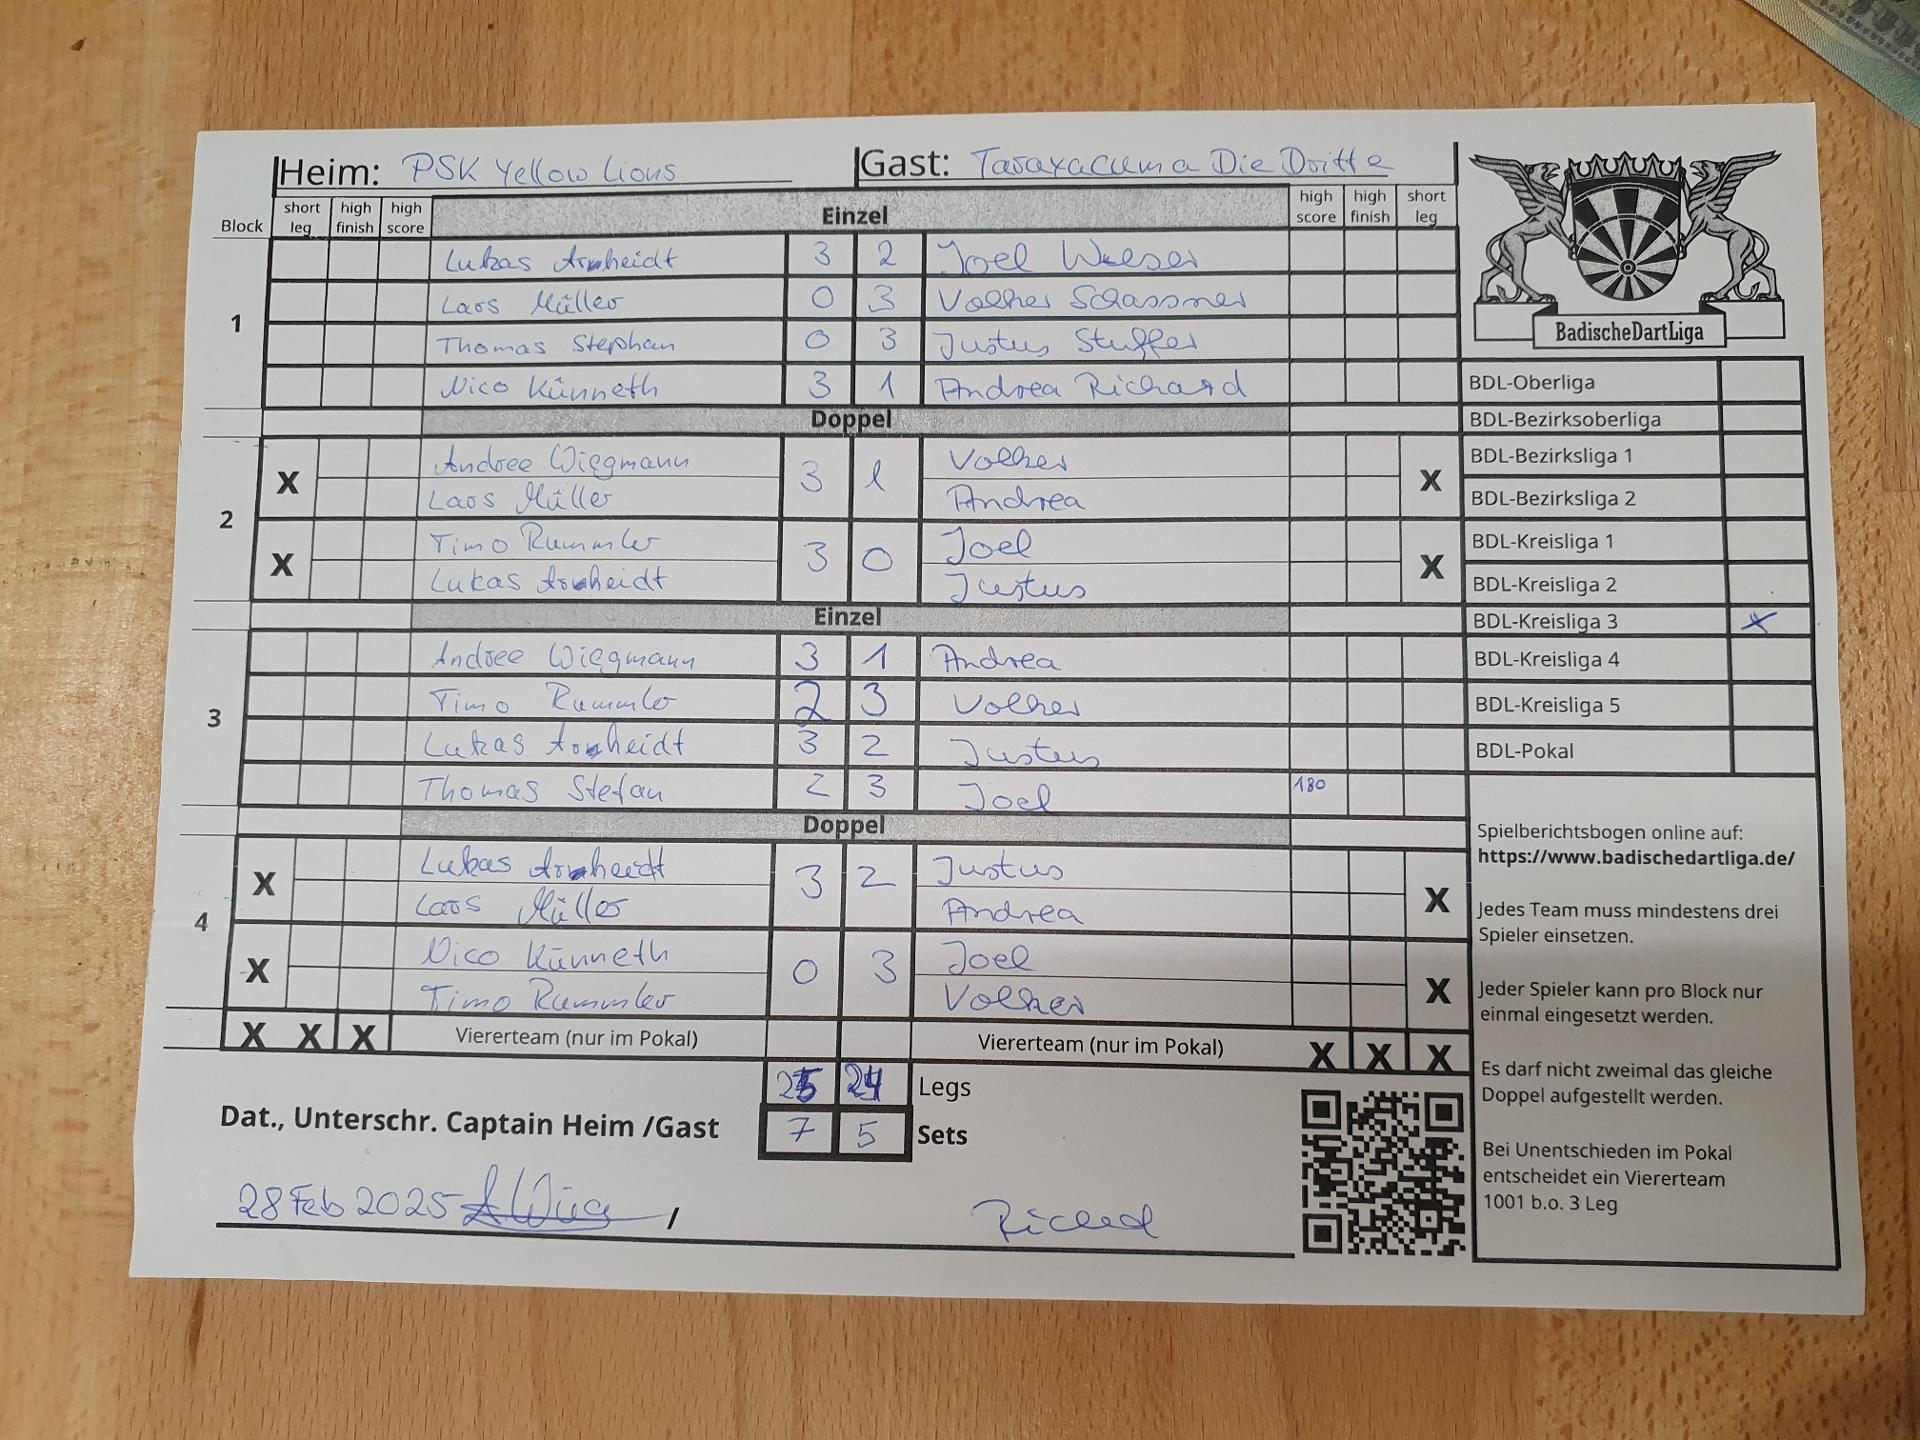 Heim: PSK Yellow Lions Gast: Taraxacum a Die Dritte
Block short leg high finish high score Einzel high score high finish short leg
1
Lukas Arnheidt 3 2 Joel Weser
Lars Müller 0 3 Volker Schassner
Thomas Stephan 0 3 Justus Stuffer
Nico Künneth 3 1 Andrea Richard
Doppel
2
X Andree Wiegmann 3 1 Volker X
Lars Müller Andrea
X Timo Rummler 3 0 Joel X
Lukas Arnheidt Justus
Einzel
3
Andree Wiegmann 3 1 Andrea
Timo Rummler 2 3 Volker
Lukas Arnheidt 3 2 Justus
Thomas Stefan 2 3 Joel 180
Doppel
4
X Lukas Arnheidt 3 2 Justus X
Lars Müller Andrea
X Nico Künneth 0 3 Joel X
Timo Rummler Volker
X X X Viererteam (nur im Pokal) Viererteam (nur im Pokal) X X X
25 24 Legs
Dat., Unterschr. Captain Heim /Gast 7 5 Sets
28 Feb 2025 / Richard
BadischeDartLiga
BDL-Oberliga
BDL-Bezirksoberliga
BDL-Bezirksliga 1
BDL-Bezirksliga 2
BDL-Kreisliga 1
BDL-Kreisliga 2
BDL-Kreisliga 3 x
BDL-Kreisliga 4
BDL-Kreisliga 5
BDL-Pokal
Spielberichtsbogen online auf:
https://www.badischedartliga.de/
Jedes Team muss mindestens drei
Spieler einsetzen.
Jeder Spieler kann pro Block nur
einmal eingesetzt werden.
Es darf nicht zweimal das gleiche
Doppel aufgestellt werden.
Bei Unentschieden im Pokal
entscheidet ein Viererteam
1001 b.o. 3 Leg